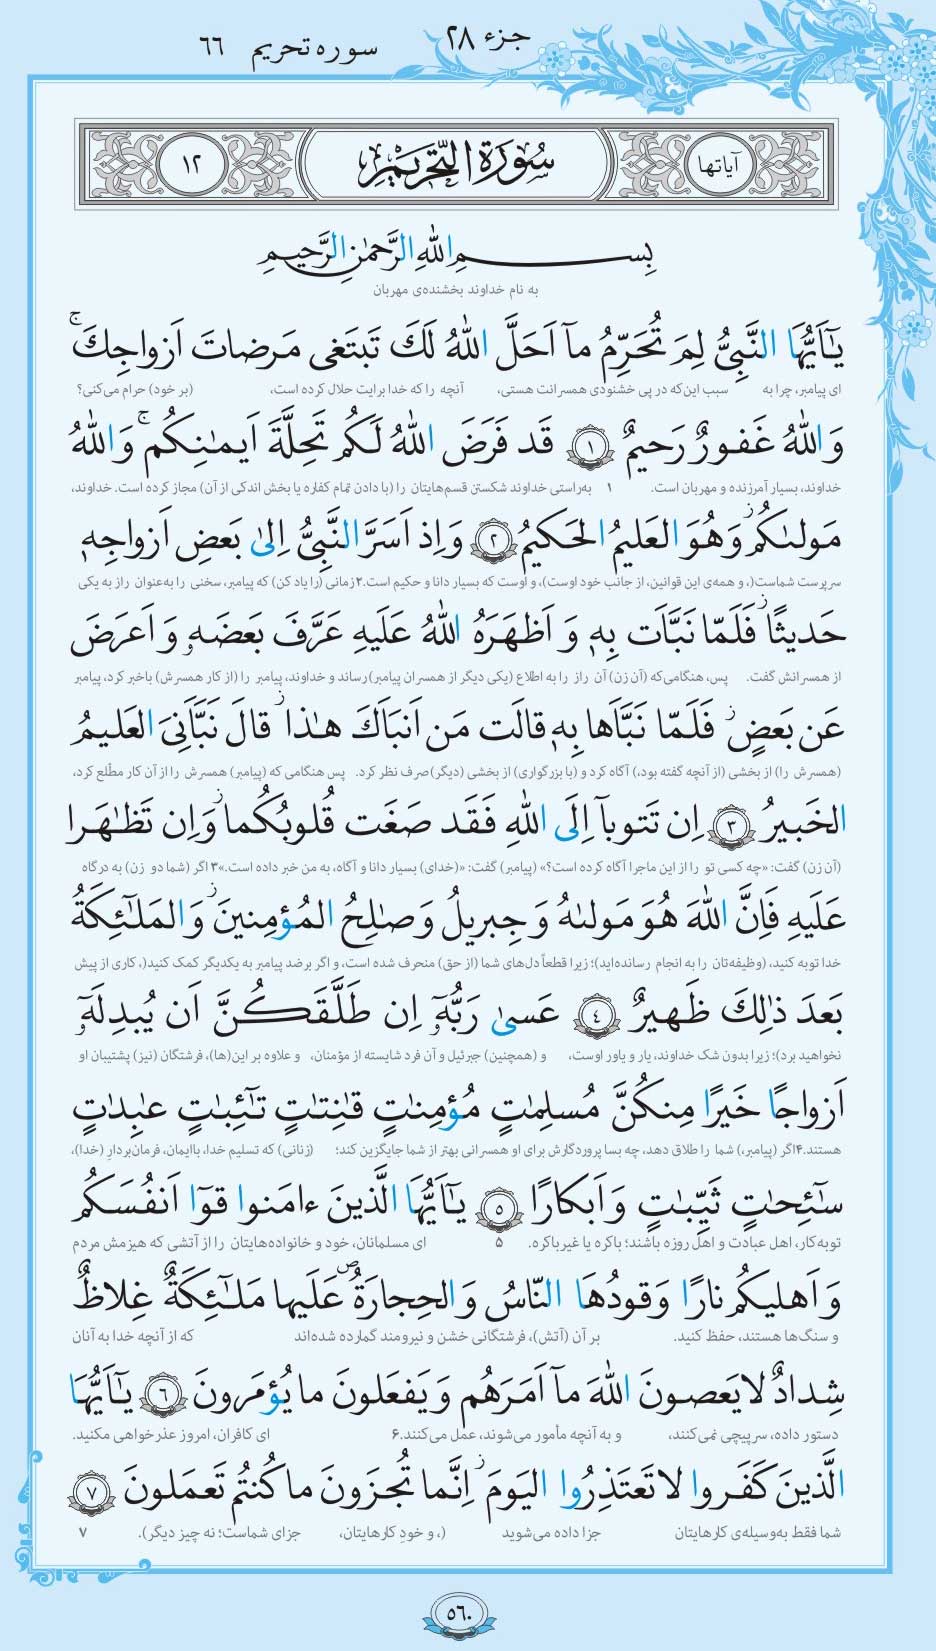 جزء ۲۸
سوره تحریم ۶۶
آیاتها سُورَةُ التَّحْرِيمِ ۱۲
بِسمِ اللّٰهِ الرَّحمٰنِ الرَّحيمِ
به نام خداوند بخشنده‌ی مهربان
يٰٓاَيُّهَا النَّبِيُّ لِمَ تُحَرِّمُ مآ اَحَلَّ اللّٰهُ لَكَ تَبتَغى مَرضاتَ اَزواجِكَ ۚ
ای پیامبر، چرا به سبب این‌که در پی خشنودی همسرانت هستی، آنچه را که خدا برایت حلال کرده است، (بر خود) حرام می‌کنی؟
وَاللّٰهُ غَفورٌ رَحيمٌ ﴿۱﴾ قَد فَرَضَ اللّٰهُ لَكُم تَحِلَّةَ اَيمٰنِكُم ۚ وَاللّٰهُ
خداوند، بسیار آمرزنده و مهربان است. ۱ به‌راستی خداوند شکستن قسم‌هایتان را (با دادن تمام کفاره یا بخش اندکی از آن) مجاز کرده است. خداوند،
مَولىٰكُم ۖ وَهُوَ العَليمُ الحَكيمُ ﴿۲﴾ وَاِذ اَسَرَّ النَّبِيُّ اِلىٰ بَعضِ اَزواجِه
سرپرست شماست(، و همه‌ی این قوانین، از جانب خود اوست)، و اوست که بسیار دانا و حکیم است.۲ زمانی (را یاد کن) که پیامبر، سخنی را به‌عنوان راز به یکی
حَديثًا ۖ فَلَمّا نَبَّاَت بِه وَ اَظهَرَهُ اللّٰهُ عَلَيهِ عَرَّفَ بَعضَهُ وَ اَعرَضَ
از همسرانش گفت. پس، هنگامی‌که (آن زن) آن راز را به اطلاع (یکی دیگر از همسران پیامبر) رساند و خداوند، پیامبر را (از کار همسرش) باخبر کرد، پیامبر
عَن بَعضٍ ۖ فَلَمّا نَبَّاَها بِه قالَت مَن اَنبَاَكَ هٰذا ۖ قالَ نَبَّاَنِيَ العَليمُ
(همسرش را) از بخشی (از آنچه گفته بود،) آگاه کرد و (با بزرگواری) از بخشی (دیگر) صرف نظر کرد. پس هنگامی که (پیامبر) همسرش را از آن کار مطّلع کرد،
الخَبيرُ ﴿۳﴾ اِن تَتوبآ اِلَى اللّٰهِ فَقَد صَغَت قُلوبُكُما ۖ وَاِن تَظٰهَرا
(آن زن) گفت: «چه کسی تو را از این ماجرا آگاه کرده است؟» (پیامبر) گفت: «(خدای) بسیار دانا و آگاه، به من خبر داده است.»۳ اگر (شما دو زن) به درگاه
عَلَيهِ فَاِنَّ اللّٰهَ هُوَ مَولىٰهُ وَ جِبريلُ وَ صٰلِحُ المُؤمِنينَ ۖ وَالمَلٰٓئِكَةُ
خدا توبه کنید، (وظیفه‌تان را به انجام رسانده‌اید)؛ زیرا قطعاً دل‌های شما (از حق) منحرف شده است، و اگر برضد پیامبر به یکدیگر کمک کنید(، کاری از پیش
بَعدَ ذٰلِكَ ظَهيرٌ ﴿۴﴾ عَسىٰ رَبُّهُ اِن طَلَّقَكُنَّ اَن يُبدِلَهُ
نخواهید برد)؛ زیرا بدون شک خداوند، یار و یاور اوست، و (همچنین) جبرئیل و آن فرد شایسته از مؤمنان، و علاوه بر این(ها)، فرشتگان (نیز) پشتیبان او
اَزواجًا خَيرًا مِنكُنَّ مُسلِمٰتٍ مُؤمِنٰتٍ قٰنِتٰتٍ تٰٓئِبٰتٍ عٰبِدٰتٍ
هستند.۴ اگر (پیامبر،) شما را طلاق دهد، چه بسا پروردگارش برای او همسرانی بهتر از شما جایگزین کند؛ (زنانی) که تسلیم خدا، باایمان، فرمان‌بردارِ (خدا)،
سٰٓئِحٰتٍ ثَيِّبٰتٍ وَ اَبكارًا ﴿۵﴾ يٰٓاَيُّهَا الَّذينَ ءامَنوا قوٓا اَنفُسَكُم
توبه‌کار، اهل عبادت و اهل روزه باشند؛ باکره یا غیرباکره. ۵ ای مسلمانان، خود و خانواده‌هایتان را از آتشی که هیزمش مردم
وَ اَهليكُم نارًا وَقودُهَا النّاسُ وَالحِجارَةُ ۖ عَلَيها مَلٰٓئِكَةٌ غِلاظٌ
و سنگ‌ها هستند، حفظ کنید. بر آن (آتش)، فرشتگانی خشن و نیرومند گمارده شده‌اند که از آنچه خدا به آنان
شِدادٌ لا يَعصونَ اللّٰهَ مآ اَمَرَهُم وَ يَفعَلونَ ما يُؤمَرونَ ﴿۶﴾ يٰٓاَيُّهَا
دستور داده، سرپیچی نمی‌کنند، و به آنچه مأمور می‌شوند، عمل می‌کنند.۶ ای کافران، امروز عذرخواهی مکنید.
الَّذينَ كَفَروا لا تَعتَذِرُوا اليَومَ ۖ اِنَّما تُجزَونَ ما كُنتُم تَعمَلونَ ﴿۷﴾
شما فقط به‌وسیله‌ی کارهایتان جزا داده می‌شوید (، و خودِ کارهایتان، جزای شماست؛ نه چیز دیگر). ۷
۵۶۰